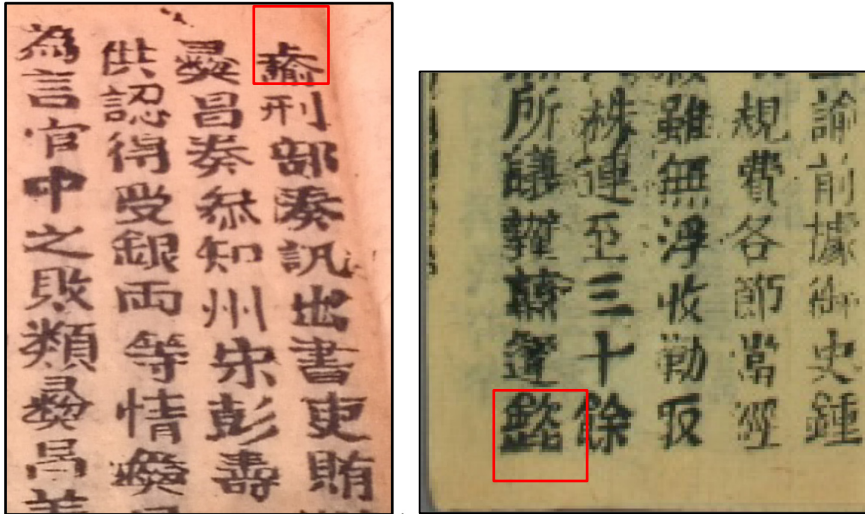 刑部奏訊出書吏賄
爕昌奏叅知州宋彭壽
供認得受銀両等情爕
為言官中之敗類爕昌
諭前據御史鍾
規費各節當經
雖無浮收勒
株連至三十餘
所議